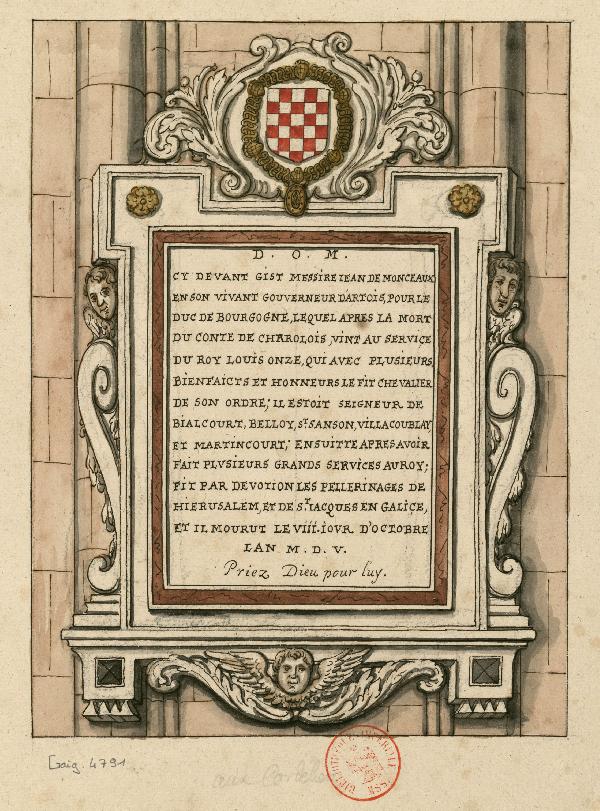 D. O. M.
CY DEVANT GIST MESSIRE IEAN DE MONCEAUX
EN SON VIVANT GOUVERNEUR DARTOIS, POUR LE
DUC DE BOURGOGNE, LEQUEL APRES LA MORT
DU CONTE DE CHAROLOIS, VINT AU SERVICE
DU ROY LOUIS ONZE, QUI AVEC PLUSIEURS
BIENFAICTS ET HONNEURS LE FIT CHEVALIER
DE SON ORDRE; IL ESTOIT SEIGNEUR DE
BIALCOURT, BELLOY, ST. SANSON, VILLACOUBLAY
ET MARTINCOURT; ENSUITTE APRES AVOIR
FAIT PLVSIEURS GRANDS SERVICES AU ROY;
FIT PAR DEVOTION LES PELLERINAGES DE
HIERUSALEM, ET DE ST. IACQUES EN GALICE,
ET IL MOURUT LE VIII. IOVR D'OCTOBRE
LAN M. D. V.
Priez Dieu pour luy.
Gaig. 4791